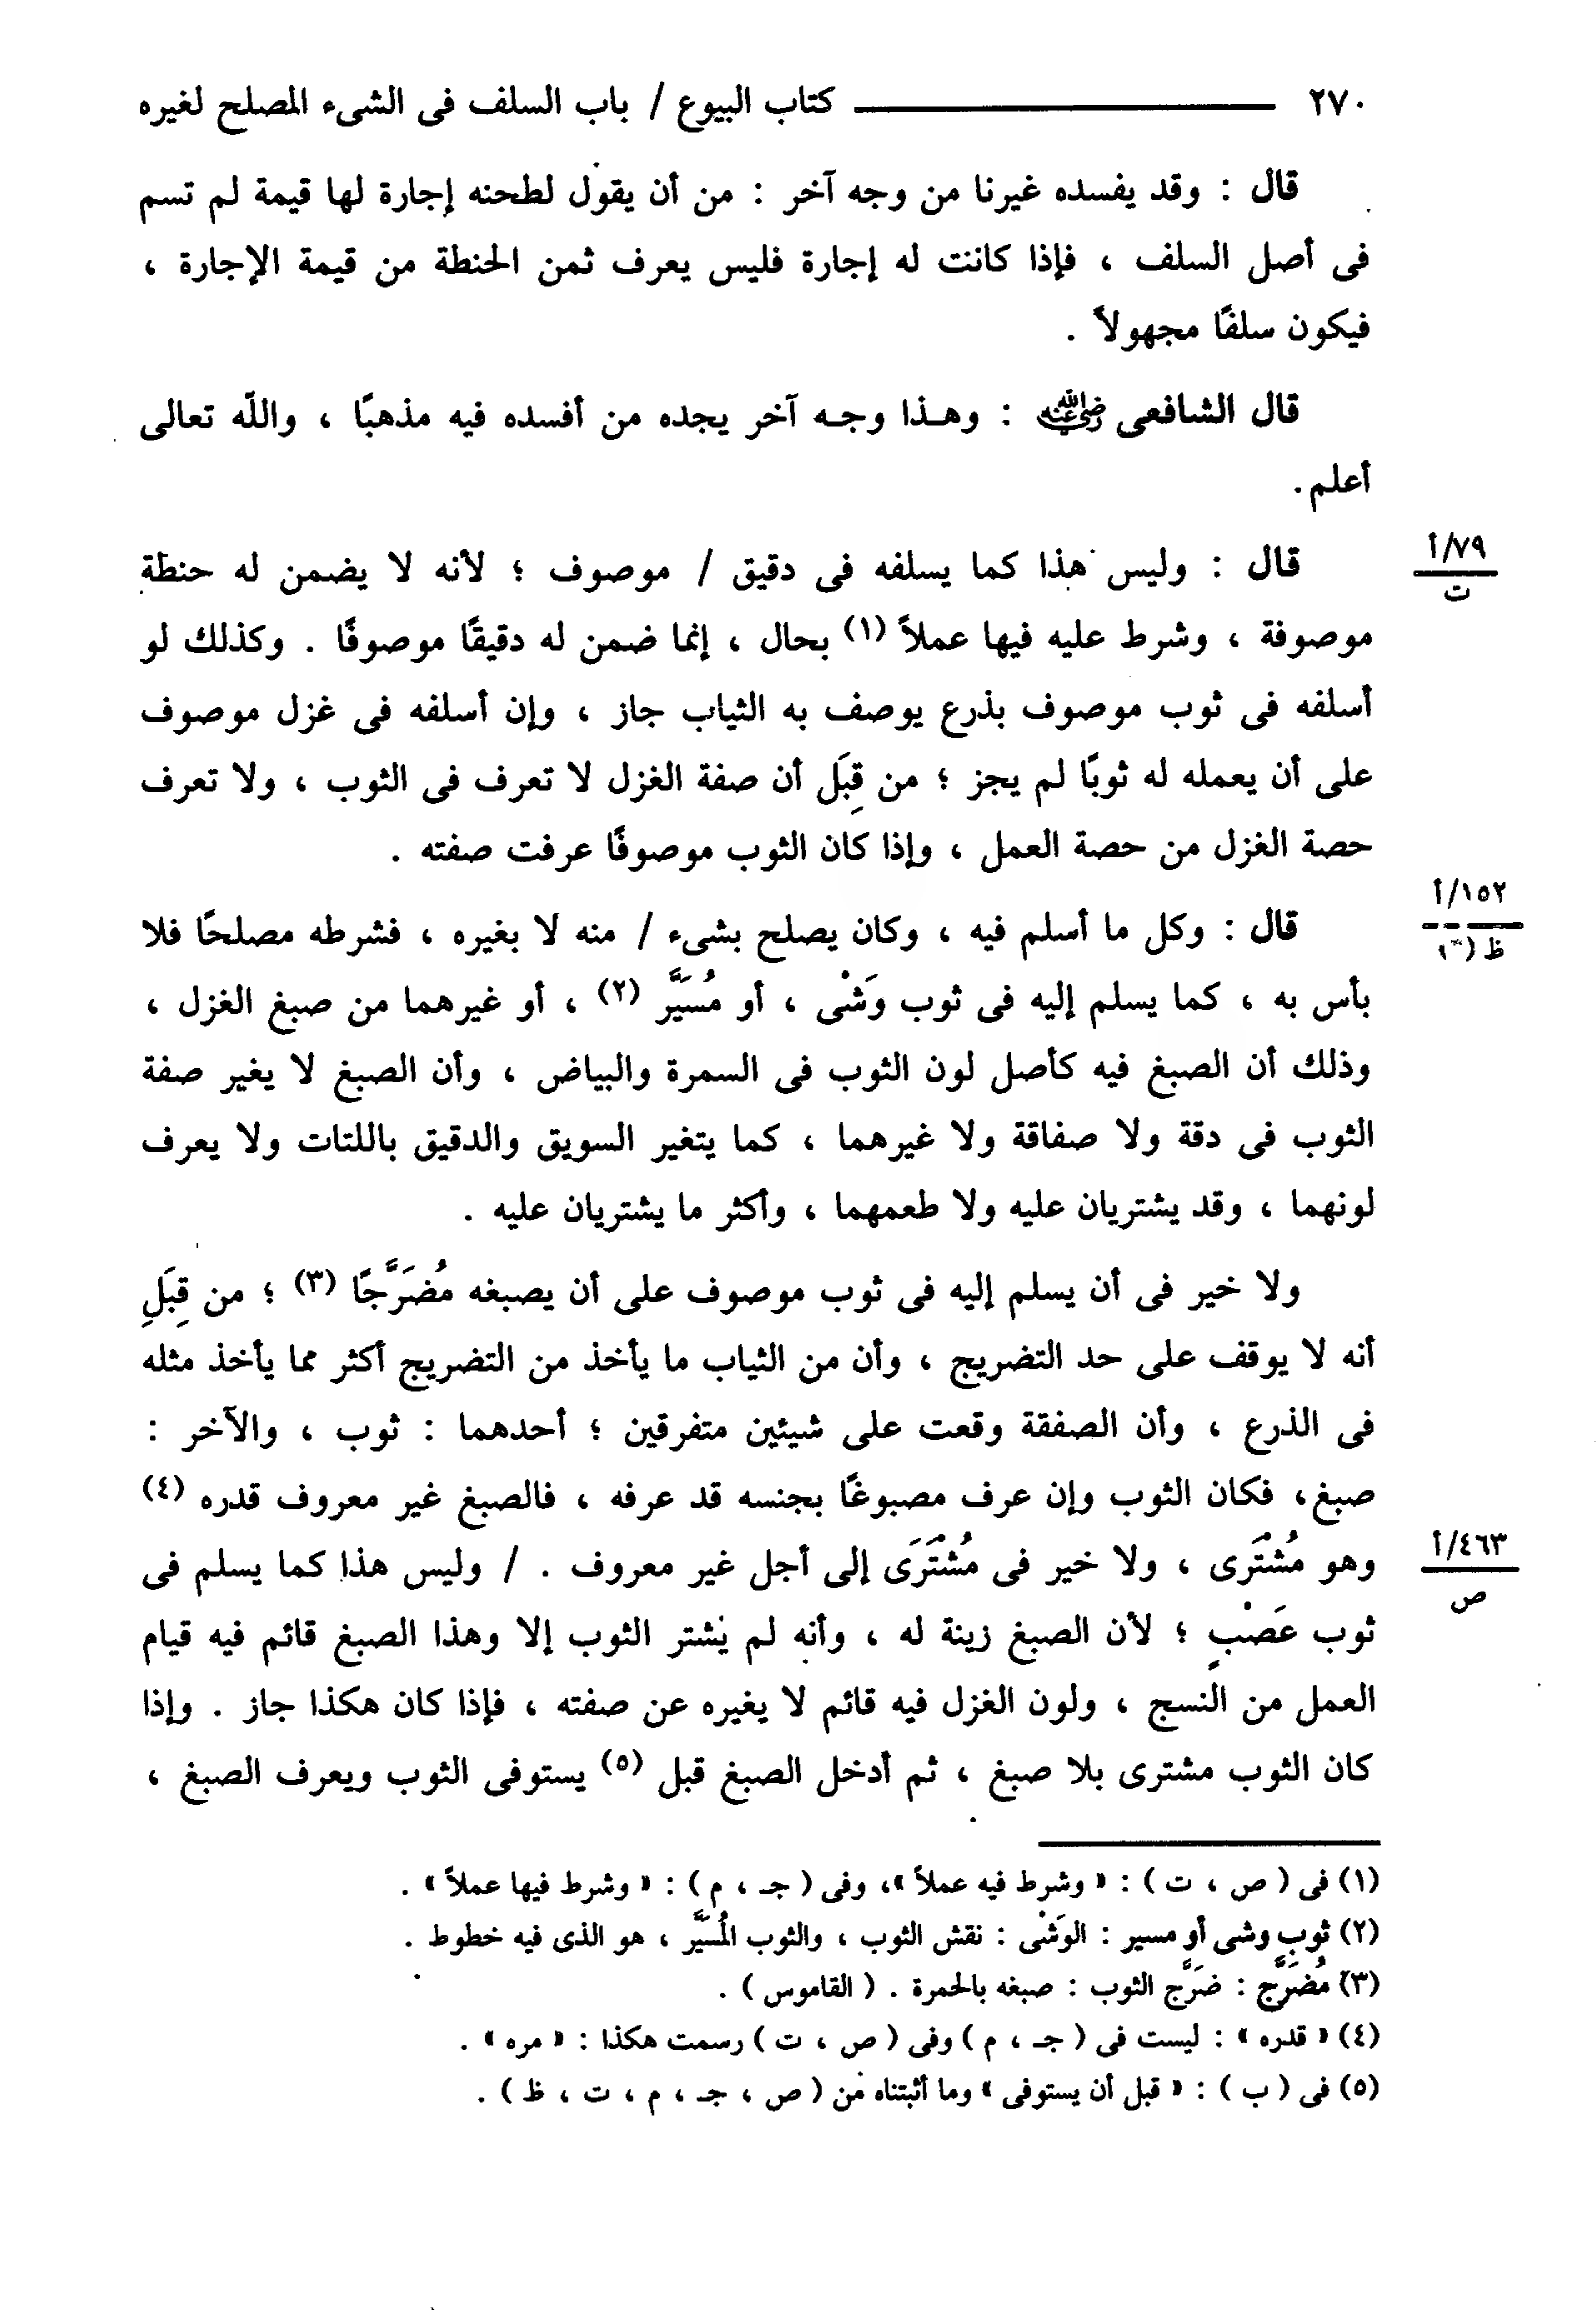 ٢٧٠ كتاب البيوع / باب السلف فى الشىء المصلح لغيره
قال : وقد يفسده غيرنا من وجه آخر : من أن يقول لطحنه إجارة لها قيمة لم تسم
فى أصل السلف ، فإذا كانت له إجارة فليس يعرف ثمن الحنطة من قيمة الإجارة ،
فيكون سلفًا مجهولاً .
قال الشافعى رضي الله عنه : وهـذا وجـه آخر يجده من أفسده فيه مذهبًا ، واللّه تعالى
أعلم.
قال : وليس هذا كما يسلفه فى دقيق / موصوف ؛ لأنه لا يضمن له حنطة
٧٩/أ
ت
موصوفة ، وشرط عليه فيها عملاً (١) بحال ، إنما ضمن له دقيقًا موصوفًا . وكذلك لو
أسلفه فى ثوب موصوف بذرع يوصف به الثياب جاز ، وإن أسلفه فى غزل موصوف
على أن يعمله له ثوبًا لم يجز ؛ من قِبَل أن صفة الغزل لا تعرف فى الثوب ، ولا تعرف
حصة الغزل من حصة العمل ، وإذا كان الثوب موصوفًا عرفت صفته .
١٥٢/أ
قال : وكل ما أسلم فيه ، وكان يصلح بشىء / منه لا بغيره ، فشرطه مصلحًا فلا
ظ (٣)
بأس به ، كما يسلم إليه فى ثوب وَشْى ، أو مُسَيَّر (٢) ، أو غيرهما من صبغ الغزل ،
وذلك أن الصبغ فيه كأصل لون الثوب فى السمرة والبياض ، وأن الصبغ لا يغير صفة
الثوب فى دقة ولا صفاقة ولا غيرهما ، كما يتغير السويق والدقيق باللتات ولا يعرف
لونهما ، وقد يشتريان عليه ولا طعمهما ، وأكثر ما يشتريان عليه .
ولا خير فى أن يسلم إليه فى ثوب موصوف على أن يصبغه مُضَرَّجًا (٣) ؛ من قِبَلِ
أنه لا يوقف على حد التضريج ، وأن من الثياب ما يأخذ من التضريج أكثر مما يأخذ مثله
فى الذرع ، وأن الصفقة وقعت على شيئين متفرقين ؛ أحدهما : ثوب ، والآخر :
صبغ، فكان الثوب وإن عرف مصبوغًا بجنسه قد عرفه ، فالصبغ غير معروف قدره (٤)
وهو مُشْتَرى ، ولا خير فى مُشْتَرَى إلى أجل غير معروف . / وليس هذا كما يسلم فى
٤٦٣/أ
ص
ثوب عَصْبٍ ؛ لأن الصبغ زينة له ، وأنه لم يشتر الثوب إلا وهذا الصبغ قائم فيه قيام
العمل من النسج ، ولون الغزل فيه قائم لا يغيره عن صفته ، فإذا كان هكذا جاز . وإذا
كان الثوب مشترى بلا صبغ ، ثم أدخل الصبغ قبل (٥) يستوفى الثوب ويعرف الصبغ ،
(١) فى ( ص ، ت ) : « وشرط فيه عملاً »، وفى ( جـ ، م ) : « وشرط فيها عملاً » .
(٢) ثوب وشى أو مسير : الوَشْى : نقش الثوب ، والثوب المُسَيَّر ، هو الذى فيه خطوط .
(٣) مُضَرَّج : ضَرَّج الثوب : صبغه بالحمرة . ( القاموس ) .
(٤) « قدره » : ليست فى ( جـ ، م ) وفى ( ص ، ت ) رسمت هكذا : « مره » .
(٥) فى ( ب ) : « قبل أن يستوفى » وما أثبتناه من ( ص ، جـ ، م ، ت ، ظ ) .